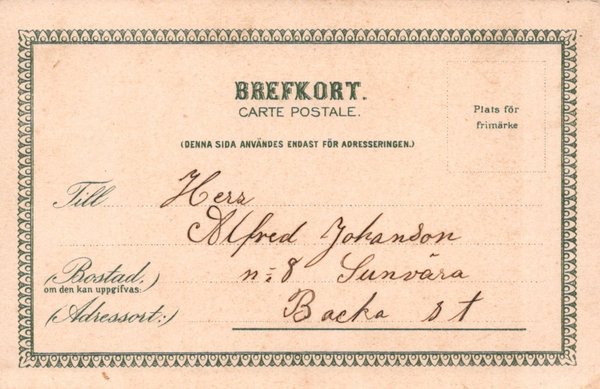 BREFKORT.
CARTE POSTALE.
Plats för
frimärke
(DENNA SIDA ANVÄNDES ENDAST FÖR ADRESSERINGEN.)
Till Herr
Alfred Johanson
(Bostad, n:8 Sunvära
om den kan uppgifvas:)
(Adressort:) Backa st